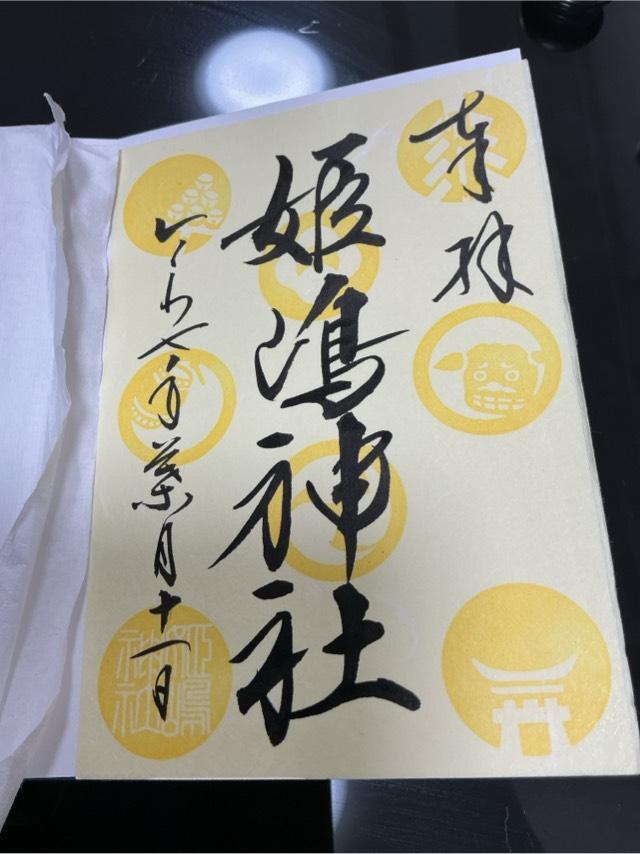 奉拝
姫嶋神社
令和七年葉月十一日
姫嶋
神社